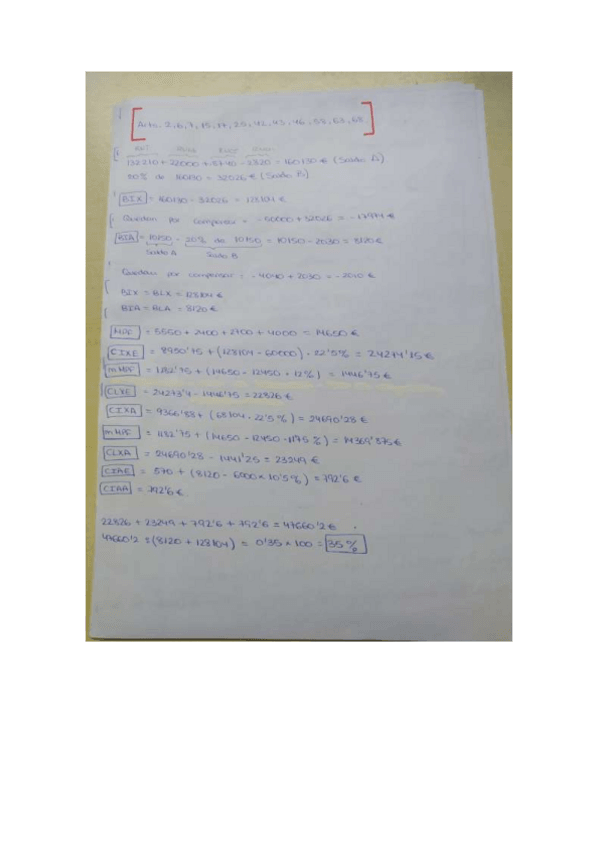 Arts. 2, 6, 7, 15, 17, 25, 42, 43, 46, 58, 63, 68
132210 + 22000 + 8740 - 2820 = 160130 € (Saldo A)
20% de 160130 = 32026 € (Saldo B)
BIX = 160130 - 32026 = 128104 €
Quedan por compensar = -50000 + 32026 = -17974 €
BIA = 10150 - 20% de 10150 = 10150 - 2030 = 8120 €
Saldo A Saldo B
Quedan por compensar = -4040 + 2030 = -2010 €
BIX = BLX = 128104 €
BIA = BLA = 8120 €
MPF = 5550 + 2400 + 2700 + 4000 = 14650 €
CIXE = 8950'75 + (128104 - 60000) · 22'5% = 24274'15 €
mMPF = 1182'75 + (14650 - 12450 · 12%) = 1446'75 €
CLXE = 24273'4 - 1446'75 = 22826 €
CIXA = 9366'88 + (68104 · 22'5%) = 24690'28 €
mMPF = 1182'75 + (14650 - 12450 · 11'75%) = €
CLXA = 24690'28 - 1441'25 = 23249 €
CIAE = 570 + (8120 - 6000 × 10'5%) = 792'6 €
CIAA = 792'6 €
22826 + 23249 + 792'6 + 792'6 = 47660'2 €
47660'2 ÷ (8120 + 128104) = 0'35 × 100 = 35%